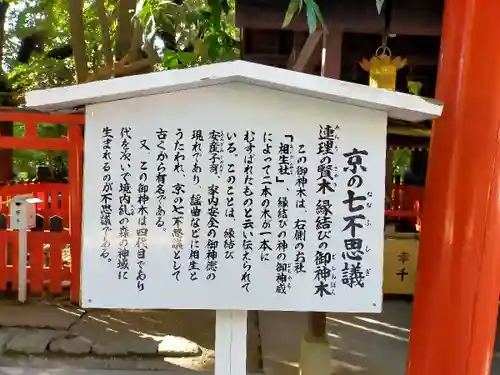 京の七不思議
連理の賢木 縁結びの御神木
この御神木は、右側のお社
「相生社」、縁結びの神の御神威
によって二本の木が一本に
むすばれたものと云い伝えられて
いる。このことは、縁結び
安産子育、家内安全の御神徳の
現れであり、謡曲などに相生と
うたわれ、京の七不思議として
古くから有名である。
又、この御神木は四代目であり
代を次いで境内糺の森の神域に
生まれるのが不思議である。
幸千